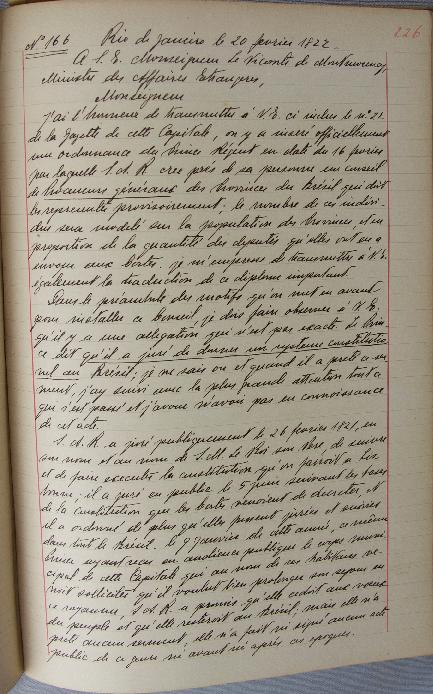 226
Nº 166 Rio de Janeiro le 20 fevrier 1822.
A S. E. Monseigneur le Vicomte de Montmorency,
Ministre des Affaires Etrangeres,
Monseigneur
J'ai l'honneur de transmettre à V. E. ci inclus le nº 21
de la Gazette de cette Capitale, on y a inséré officiellement
une ordonnance du Prince Régent en date du 16 fevrier
par laquelle S. A. R. crée près de sa personne un conseil
de Procureurs généraux des Provinces du Brésil qui doit
les representer provisoirement. le nombre de ces indivi-
dus sera modelé sur la population des Provinces et en
proportion de la quantité des deputés qu'elles ont eu a
envoyer aux Cortes. je m'empresse de transmettre à V. E.
également la traduction de ce diplome important.
Dans le préambule des motifs qu'on met en avant
pour installer ce Conseil je dois faire observer à V. E.
qu'il y a une allegation qui n'est pas exacte. le Prin-
ce dit qu'il a juré de donner un systeme constitutio
nel au Brésil; je ne sais où et quand il a prêté ce ser
ment, j'ay suivi avec la plus grande attention tout ce
qui s'est passé et j'avoue n'avoir pas eu connaissance
de cet acte.
S. A. R. a juré publiquement le 26 fevrier 1821, en
son nom et au nom de S. M. le Roi son Pere, de suivre
et de faire executer la constitution qu'on feroit a Lis
bonne; il a juré en public le 5 juin suivant les bases
de la constitution que les Cortes venoient de decreter, et
il a ordonné de plus qu'elles fussent jurées et suivies
dans tout le Brésil. le 9 janvier de cette année, ce même
Prince ayant reçu en audience publique le corps muni
cipal de cette Capitale qui au nom de ses habitans ve-
noit solliciter qu'il voulut bien prolonger son sejour en
ce royaume, S. A. R. a promis qu'elle cedoit aux voeux
du peuple et qu'elle resteroit au Brésil; mais elle n'a
prêté aucun serment, elle n'a fait ni signé aucun acte
public de ce genre ni avant ni après ces époques.